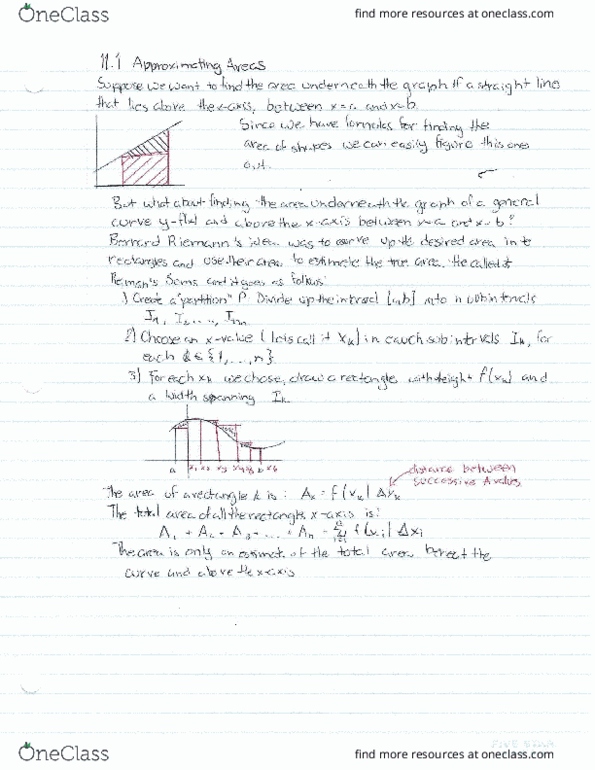 OneClass
find more resources at oneclass.com
11.1 Approximating Areas
Suppose we want to find the area underneath the graph if a straight line
that lies above the x-axis, between x=a and x=b.
Since we have formulas for finding the
area of shapes we can easily figure this one
out.
But what about finding the area underneath the graph of a general
curve y=f(x) and above the x-axis between x=a and x=b?
Bernard Riemann's idea was to carve up the desired area into
rectangles and use their area to estimate the true area. He called it
Sums and it goes as follows:
1) Create a "partition" P. Divide up the interval [a,b] into n subintervals
I₁, I₂, ...,
2) Choose an x-value (lets call it xk) in each subintervals Ik, for
each k ∈ {1,...,n}
3) For each xk we chose, draw a rectangle with height f(xk) and
a width spanning Ik.
a x₁ x₂ x₃
distance between
successive values
The area of a rectangle k is: Ak = f(xk) Δxk
The total area of all the rectangle x-axis is:
A₁ + A₂ + A₃ + ... + An = Σ f(xi) Δxi
The area is only an estimate of the total area the
curve and above the x-axis
OneClass
find more resources at oneclass.com